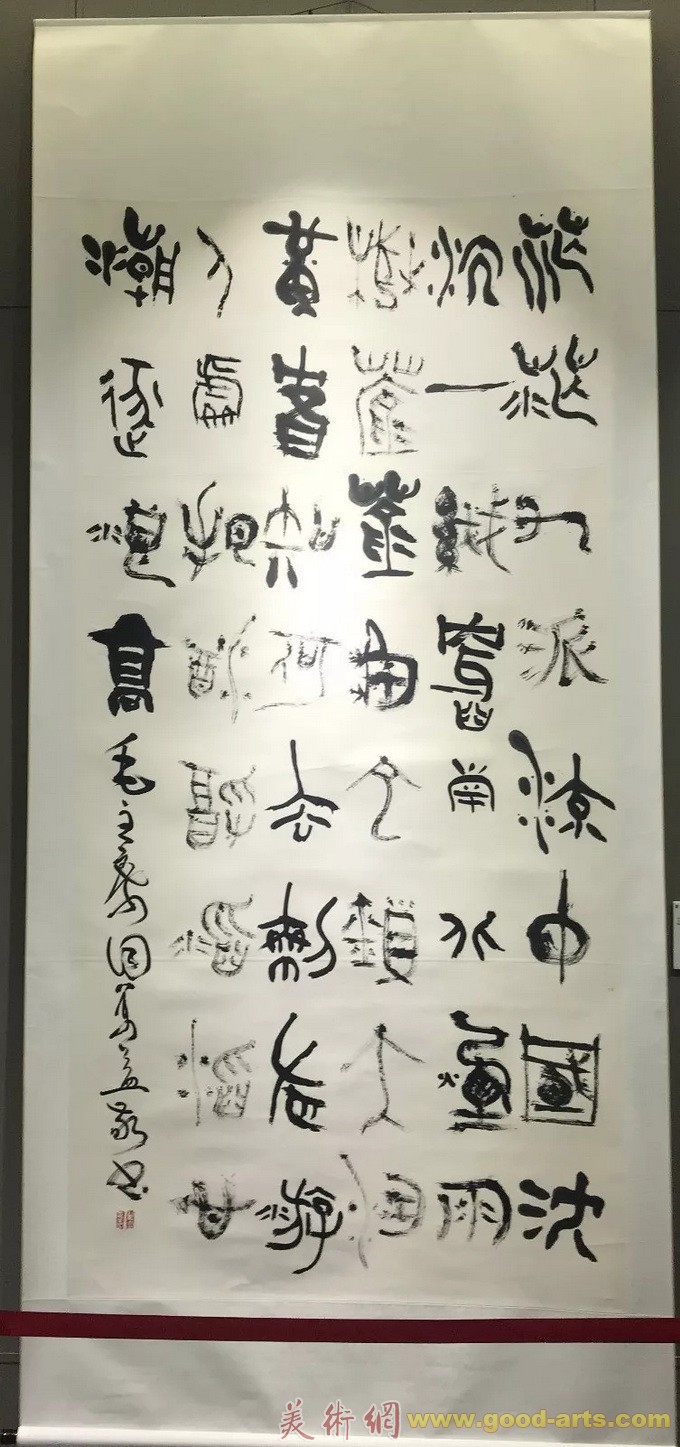 茫茫九派流中國沈
沈一綫穿南北煙雨
莽蒼蒼龜它鎖大江
黃鶴知何去剩有游
人處把酒酹滔滔心
潮逐浪高毛主席詞敬書
美術網 www.good-arts.com